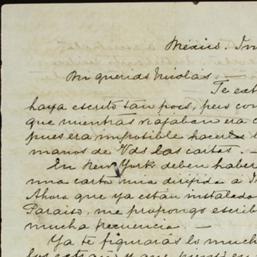 México, 
Mi querido Nicolás. —
Te ext
haya escrito tan poco, pero com
que mientras viajaban era c
pues era imposible hacerles ll
manos de Vds las cartas. —
En New York deben haber
una carta mia dirijida á
Ahora que ya están instalado
Paraiso, me propongo escrib
mucha frecuencia. —
Ya te figurarás lo much